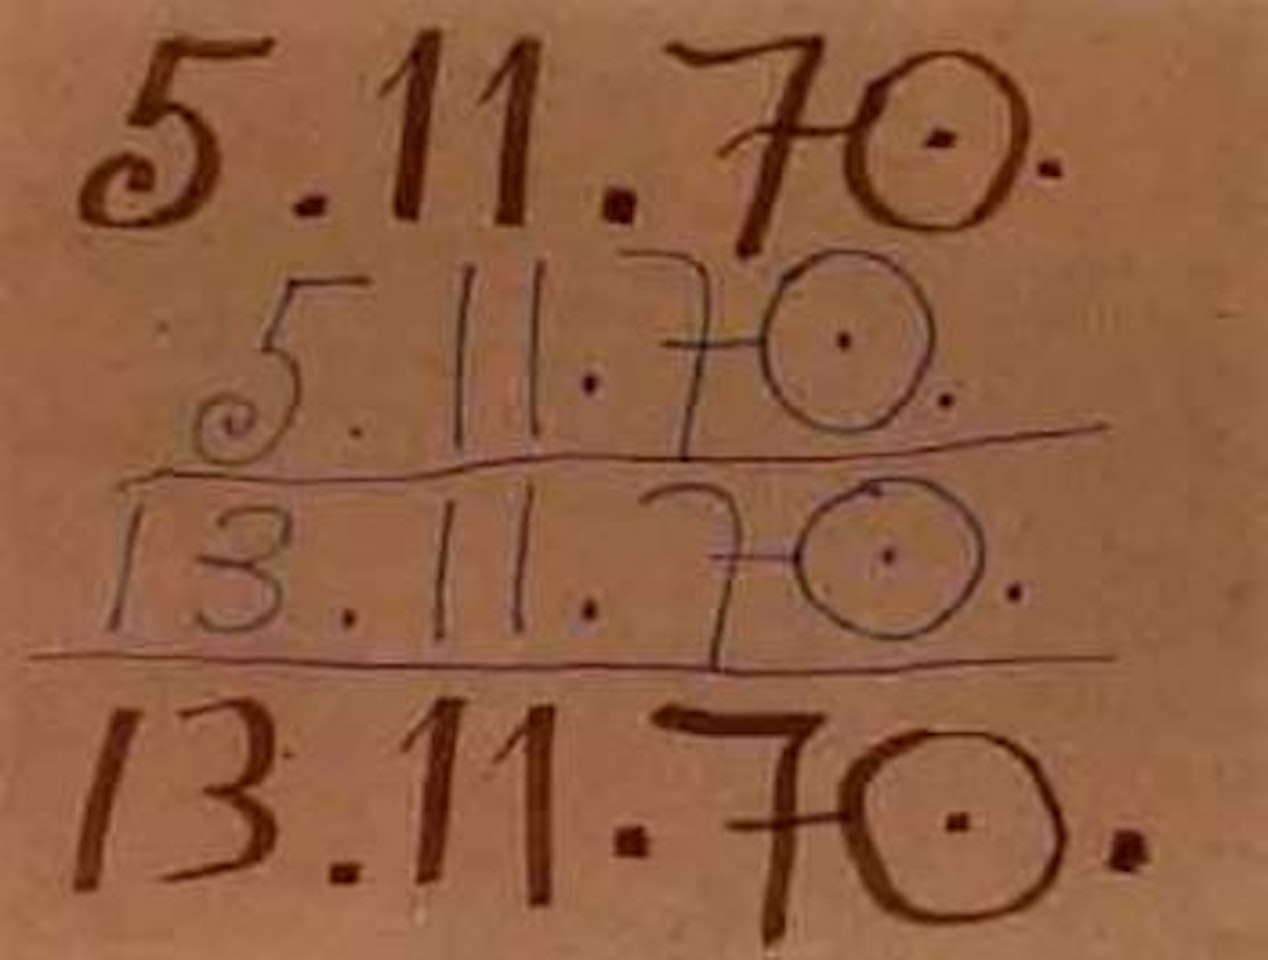 5.11.70.
5.11.70.
13.11.70.
13.11.70.